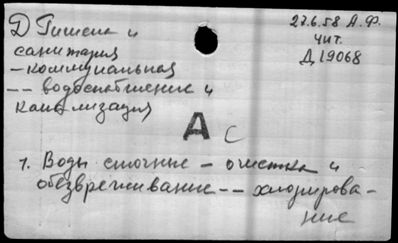 Д Гигиена и
санитария
– коммунальная
– – водоснабжение и
канализация
27.6.58 А.Ф.
Чит.
Д 19068
А С
1. Воды сточные – очистка и
обезвреживание – – хлорирова-
ние